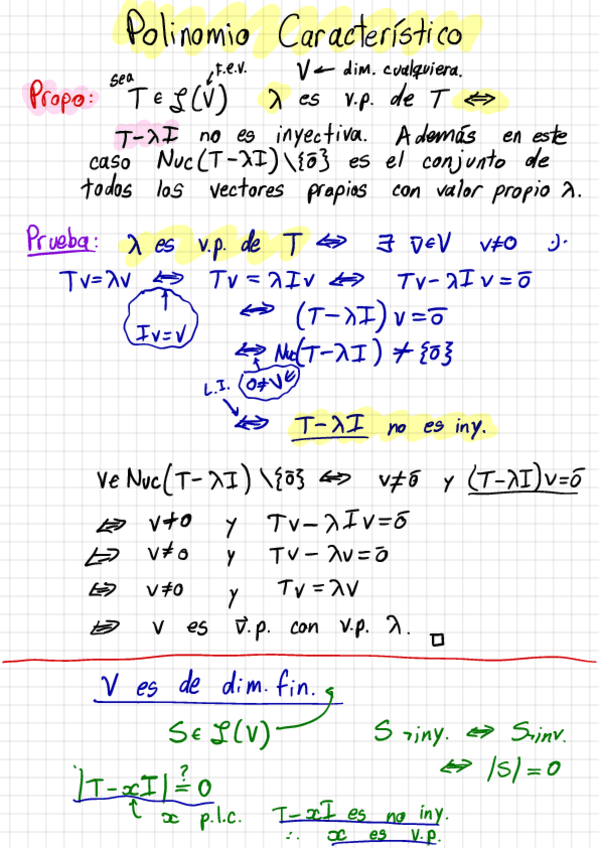 Polinomio Característico
sea F.e.v. V ← dim. cualquiera.
Propo: T ∈ 𝓛(V) λ es v.p. de T ⇔
T-λI no es inyectiva. Además en este
caso Nuc(T-λI)\{ō} es el conjunto de
todos los vectores propios con valor propio λ.
Prueba: λ es v.p. de T ⇔ ∃ v̄∈V v≠0 ·)·
Tv=λv ⇔ Tv = λIv ⇔ Tv-λIv=ō
Iv=v
⇔ (T-λI)v=ō
⇔ Nuc(T-λI) ≠ {ō}
L.I. 0≠v∈
⇔ T-λI no es iny.
v∈Nuc(T-λI)\{ō} ⇔ v≠ō y (T-λI)v=ō
⇔ v≠0 y Tv-λIv=ō
⇔ v≠0 y Tv-λv=ō
⇔ v≠0 y Tv=λv
⇔ v es v⃗.p. con v.p. λ. □
V es de dim. fin.
S∈𝓛(V) S ¬iny. ⇔ S¬inv.
⇔ |S|=0
|T-xI| ?= 0
x p.l.c.
T-xI es no iny.
∴ x es v.p.